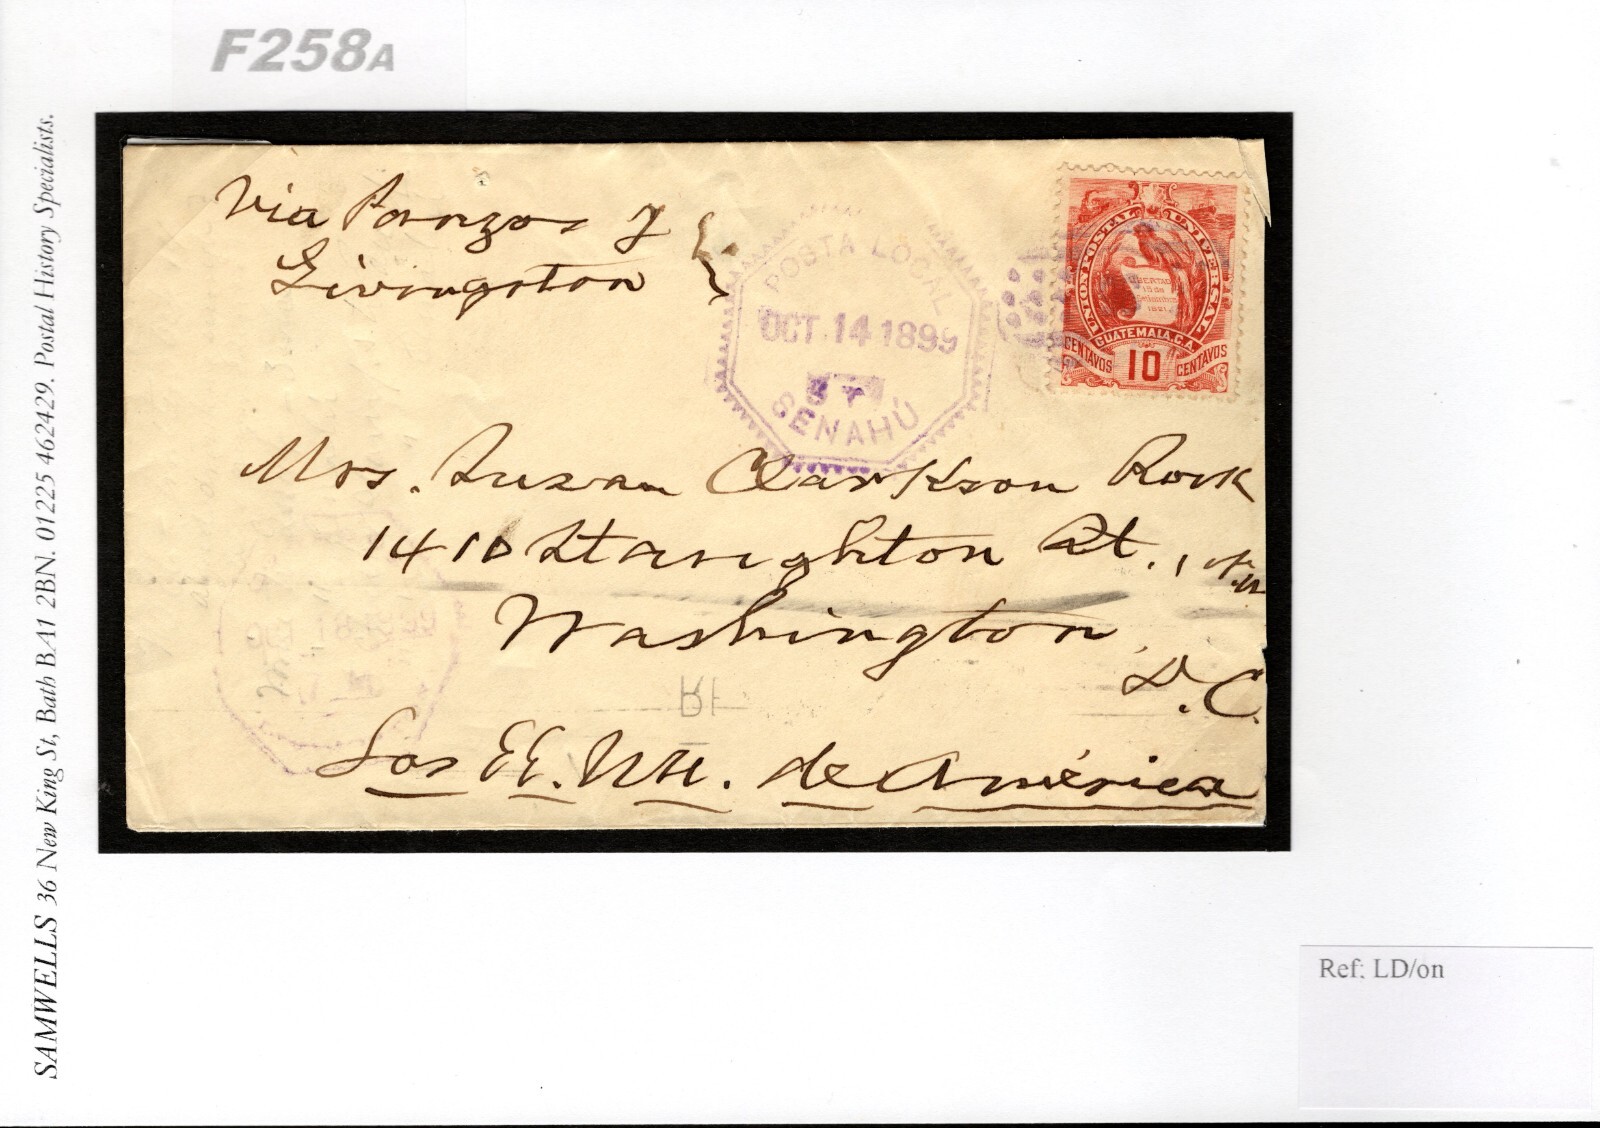 F258A
SAMWELLS 36 New King St, Bath BA1 2BN. 01225 462429. Postal History Specialists.
Via Panzos y
Livingston
POSTA LOCAL
OCT. 14 1899
SENAHÚ
UNION POSTAL UNIVERSAL
LIBERTAD
15 DE
GUATEMALA, C.A.
CENTAVOS 10 CENTAVOS
Mrs. Susan Clarkson Rock
1410 Staughton St.,
Washington
D.C.
Los EE. UU. de América
Ref: LD/on